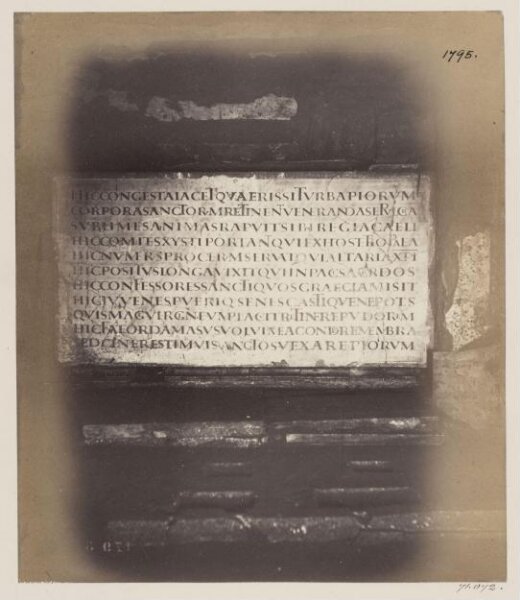 1795.
HIC CONGESTA IACET QVAERIS SI TVRBA PIORVM
CORPORA SANCTORM RETINENT VENRANDA
SVBLIMES ANIMAS RAPVIT SIBI REGIA CAELI
HIC COMITES XYSTI PORTANT QVI EX HOST
HIC PROCERM SERVAT QVI ALTARIA XPI
HIC POSITVS LONGA VIXIT QVI IN PAC SACRDOS
HIC CONFESSORES SANCTI QVOS GRAECIA MISIT
HIC IVVENES PVERIQ SENES CASTIQVE NEPOTS
QVIS MAG VIRGNEVM PLACIT RETINERE PVDORM
HIC FATOR DAMASVS VOLVI MEA CONDRE MEMBRA
SED CINERES TIMVI SANCTOS VEXARE PIORVM